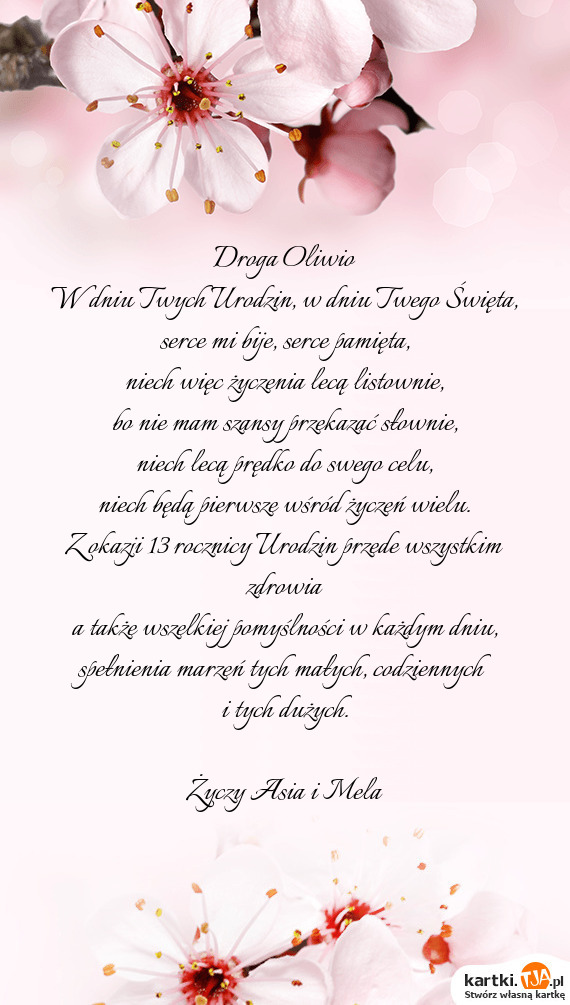 Droga Oliwio
W dniu Twych Urodzin, w dniu Twego Święta,
serce mi bije, serce pamięta,
niech więc życzenia lecą listownie,
bo nie mam szansy przekazać słownie,
niech lecą prędko do swego celu,
niech będą pierwsze wśród życzeń wielu.
Z okazji 13 rocznicy Urodzin przede wszystkim
zdrowia
a także wszelkiej pomyślności w każdym dniu,
spełnienia marzeń tych małych, codziennych
i tych dużych.
Życzy Asia i Mela
kartki.TJA.pl
Stwórz własną kartkę